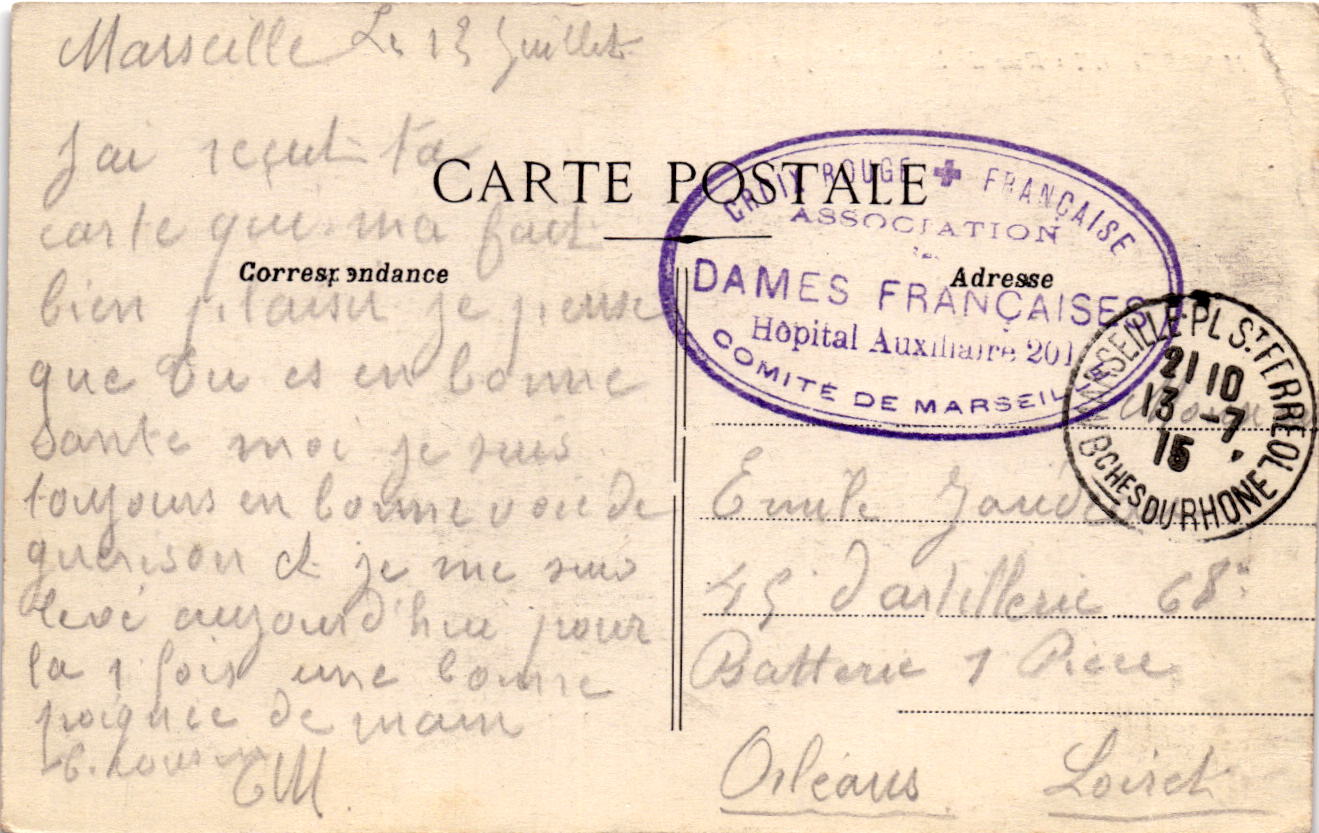 Marseille Le 13 Juillet
J'ai reçut ta
carte qui ma fait
bien plaisir je pense
que tu es en bonne
sante moi je suis
toujours en bonne voie de
guerison et je me suis
levé aujourd'hui pour
la 1 fois une bonne
poignée de main
CARTE POSTALE
Correspondance
Adresse
CROIX ROUGE FRANÇAISE
ASSOCIATION
DAMES FRANÇAISES
Hôpital Auxiliaire 201
COMITÉ DE MARSEILLE
MARSEILLE-PL ST FERREOL
21 10
13 -7
15
BCHES DU RHONE
Emile
45 d'artillerie 68e
Batterie 1 Piece
Orléans Loiret